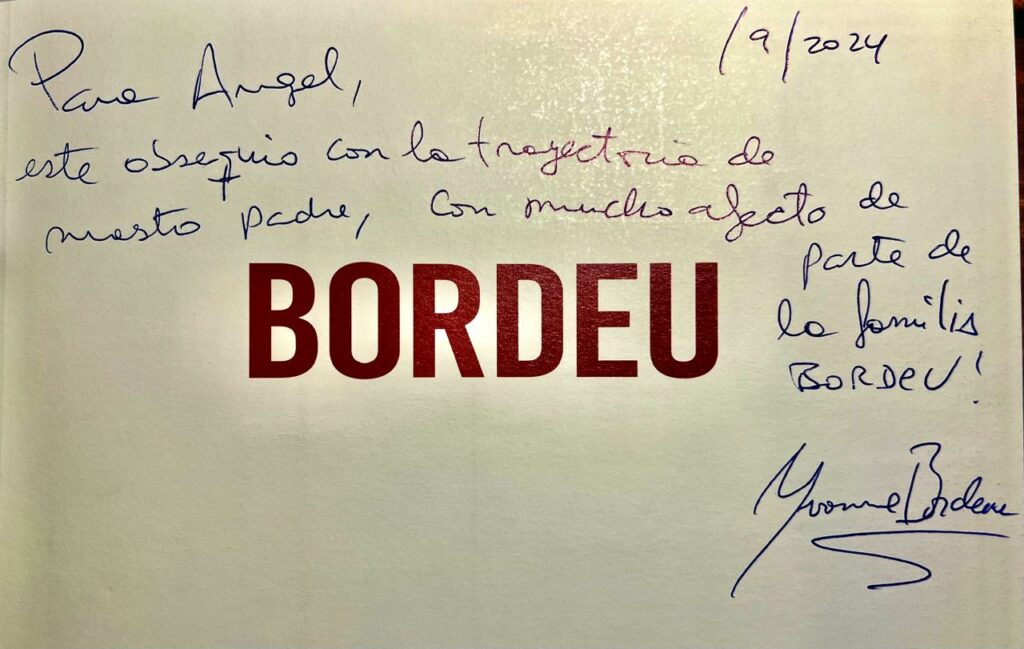 /9/2024
Para Angel,
este obsequio con la trayectoria de
nuestro padre, con mucho afecto de
parte de
la familia
BORDEU!
BORDEU
Yvonne Bordeu